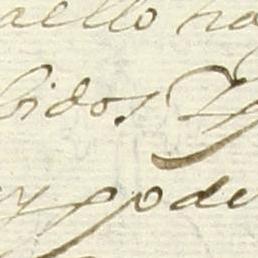 aello no
bidos Y
y pode